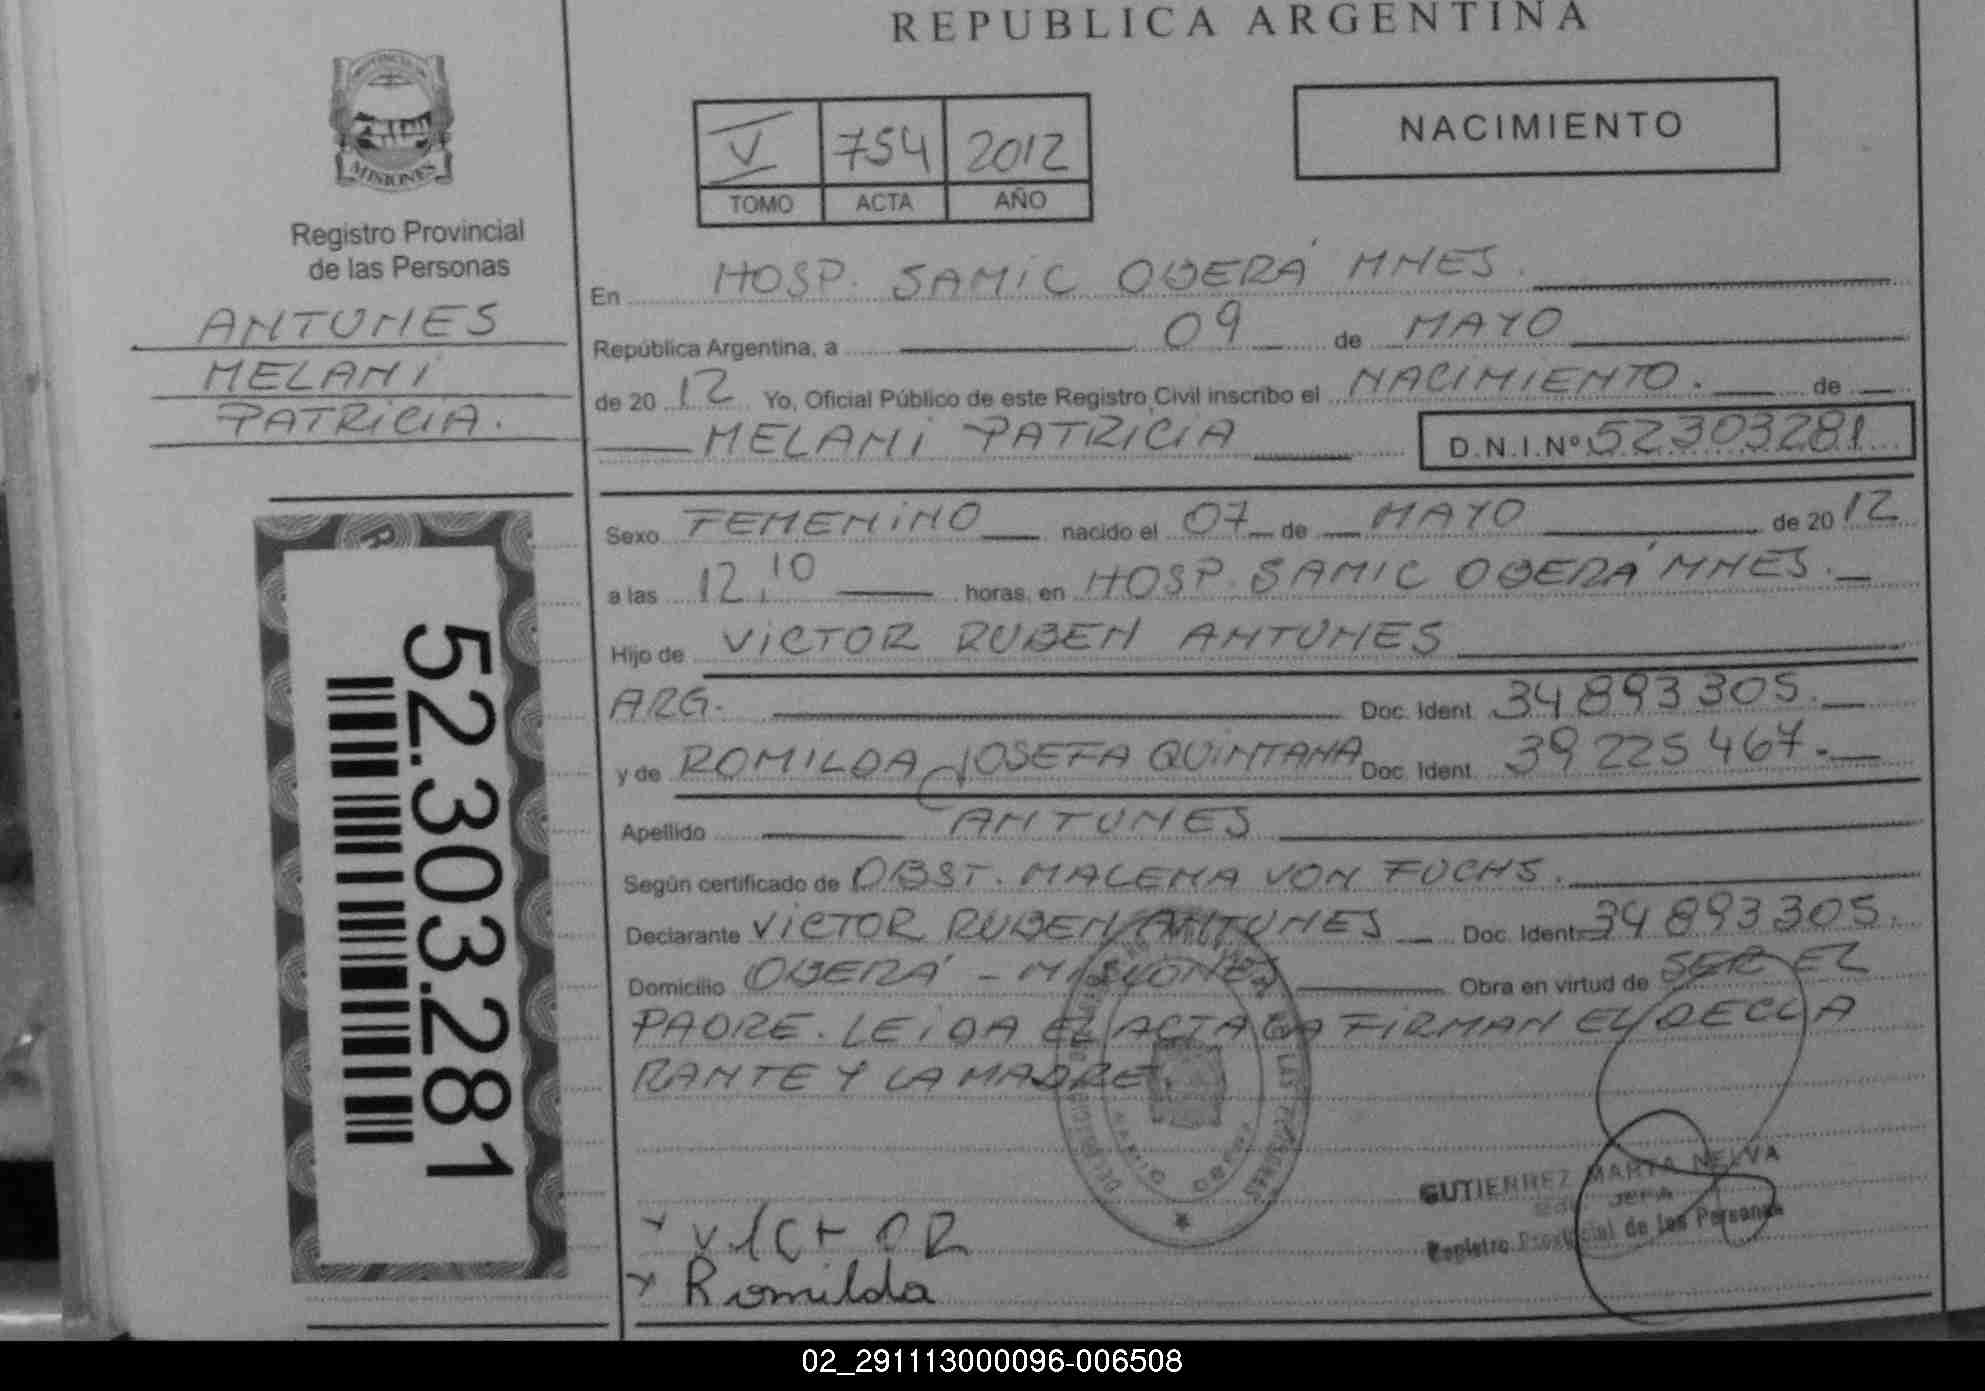 REPUBLICA ARGENTINA
PROVINCIA DE
MISIONES
Registro Provincial
de las Personas
ANTUNES
MELANI
PATRICIA.
52.303.281
V 754 2012
TOMO ACTA AÑO
NACIMIENTO
En HOSP. SAMIC OBERÁ MNES.
República Argentina, a 09 de MAYO
de 2012 Yo, Oficial Público de este Registro Civil inscribo el NACIMIENTO. de
MELANI PATRICIA D.N.I.Nº 52303281
Sexo FEMENINO nacido el 07 de MAYO de 2012
a las 12,10 horas, en HOSP. SAMIC OBERÁ MNES.
Hijo de VICTOR RUBEN ANTUNES
ARG. Doc. Ident. 34893305.
y de ROMILDA JOSEFA QUINTANA Doc. Ident. 39225467.
Apellido ANTUNES
Según certificado de OBST. MALENA VON FUCHS.
Declarante VICTOR RUBEN ANTUNES Doc. Ident. 34893305.
Domicilio OBERÁ - MISIONES Obra en virtud de SER EL
PADRE. LEIDA EL ACTA LA FIRMAN EL DECLA
RANTE Y LA MADRE.
GUTIERREZ MARTA NELVA
JEFA
Registro Provincial de las Personas
x VICTOR
x Romilda
02_291113000096-006508